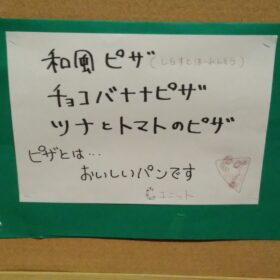 和風ピザ(しらすとほーれんそう)
チョコバナナピザ
ツナとトマトのピザ
ピザとは…
おいしいパンです
Cユニット